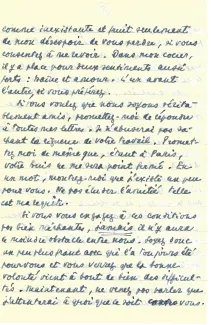 comme inexistante et punit seulement
de mon désespoir de vous perdre, si vous
consentez à me revoir. Dans mon coeur,
il y a place pour deux sentiments aussi
forts : haine et amour. L'un avant
l'autre, si vous préférez.
Si vous voulez que nous soyons vérita-
blement amis, promettez-moi de répondre
à toutes mes lettres. Je n'abuserai pas sa-
chant la rigueur de votre travail. Promet-
tez-moi de même que, étant à Paris,
votre huis ne me sera point fermé. En
un mot, montrez-moi que j'existe un peu
pour vous. Ne pas tuer l'amitié telle
est ma requête.
Si vous vous engagez à ces conditions
pas bien méchantes, jamais il n'y aura
le moindre obstacle entre nous. Soyez donc
un peu plus franc avec qui l'a toujours été
pour vous et vous verrez que la bonne
volonté vient à bout de bien des difficul-
tés. Maintenant, ne venez pas parler que
j'attenterai à quoi que ce soit contre vous.